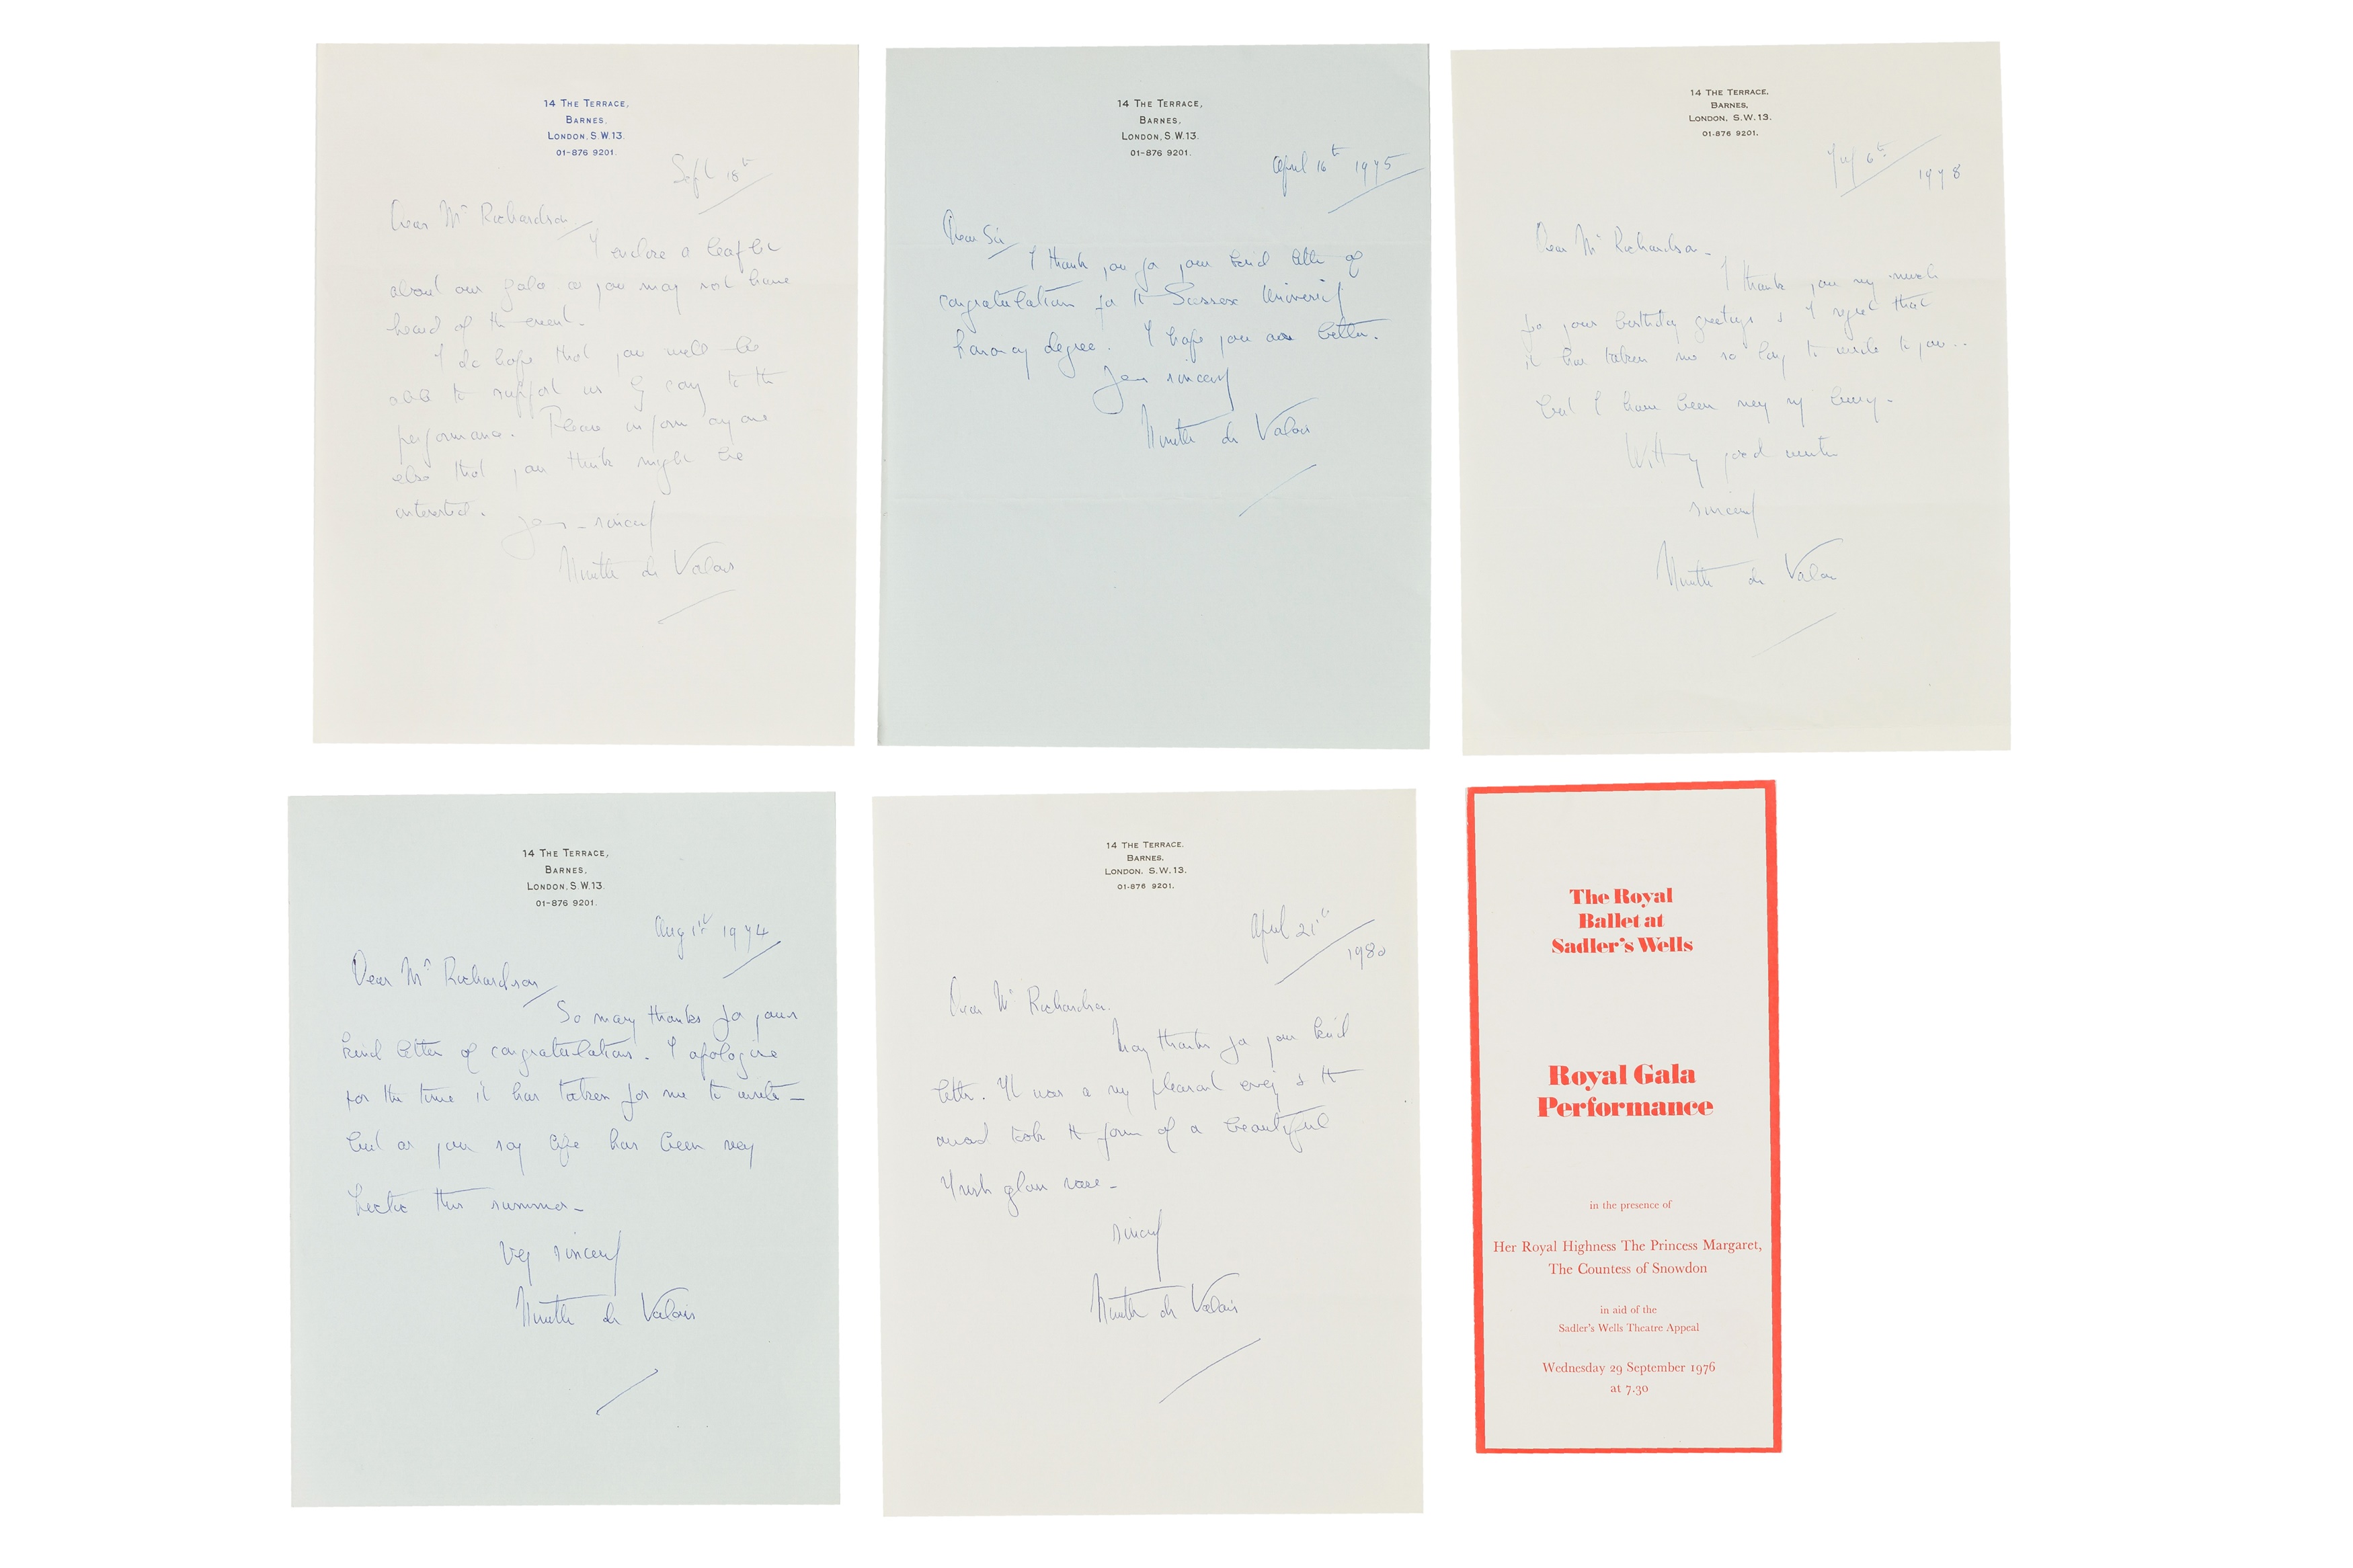 14 The Terrace,
Barnes.
London, S.W.13.
01-876 9201.
Sept 18th
Dear Mr Richardson
I enclose a leaflet
about our gala as you may not have
heard of the event.
I do hope that you will be
able to support us by coming to the
performance. Please inform any one
else that you think might be
interested.
Yours sincerely
Ninette de Valois
14 The Terrace,
Barnes,
London, S.W.13.
01-876 9201.
April 16th 1975
Dear Sir
I thank you for your kind letter of
congratulation for the Sussex University
honorary degree. I hope you are better.
Yours sincerely
Ninette de Valois
14 The Terrace,
Barnes,
London, S.W.13.
01-876 9201.
July 6th
1978
Dear Mr Richardson -
I thank you very much
for your birthday greetings & I regret that
it has taken me so long to write to you..
but I have been very very busy -
With good wishes
sincerely
Ninette de Valois
14 The Terrace,
Barnes,
London, S.W.13.
01-876 9201.
Aug 1st 1974
Dear Mr Richardson
So many thanks for your
kind letter of congratulations. I apologise
for the time it has taken for me to write -
but as you say life has been very
hectic this summer -
Very sincerely
Ninette de Valois
14 The Terrace.
Barnes,
London, S.W.13.
01-876 9201.
April 21st
1980
Dear Mr Richardson.
Many thanks for your kind
letter. It was a very pleasant evening & the
award took the form of a beautiful
Irish glass vase -
sincerely
Ninette de Valois
The Royal
Ballet at
Sadler's Wells
Royal Gala
Performance
in the presence of
Her Royal Highness The Princess Margaret,
The Countess of Snowdon
in aid of the
Sadler's Wells Theatre Appeal
Wednesday 29 September 1976
at 7.30